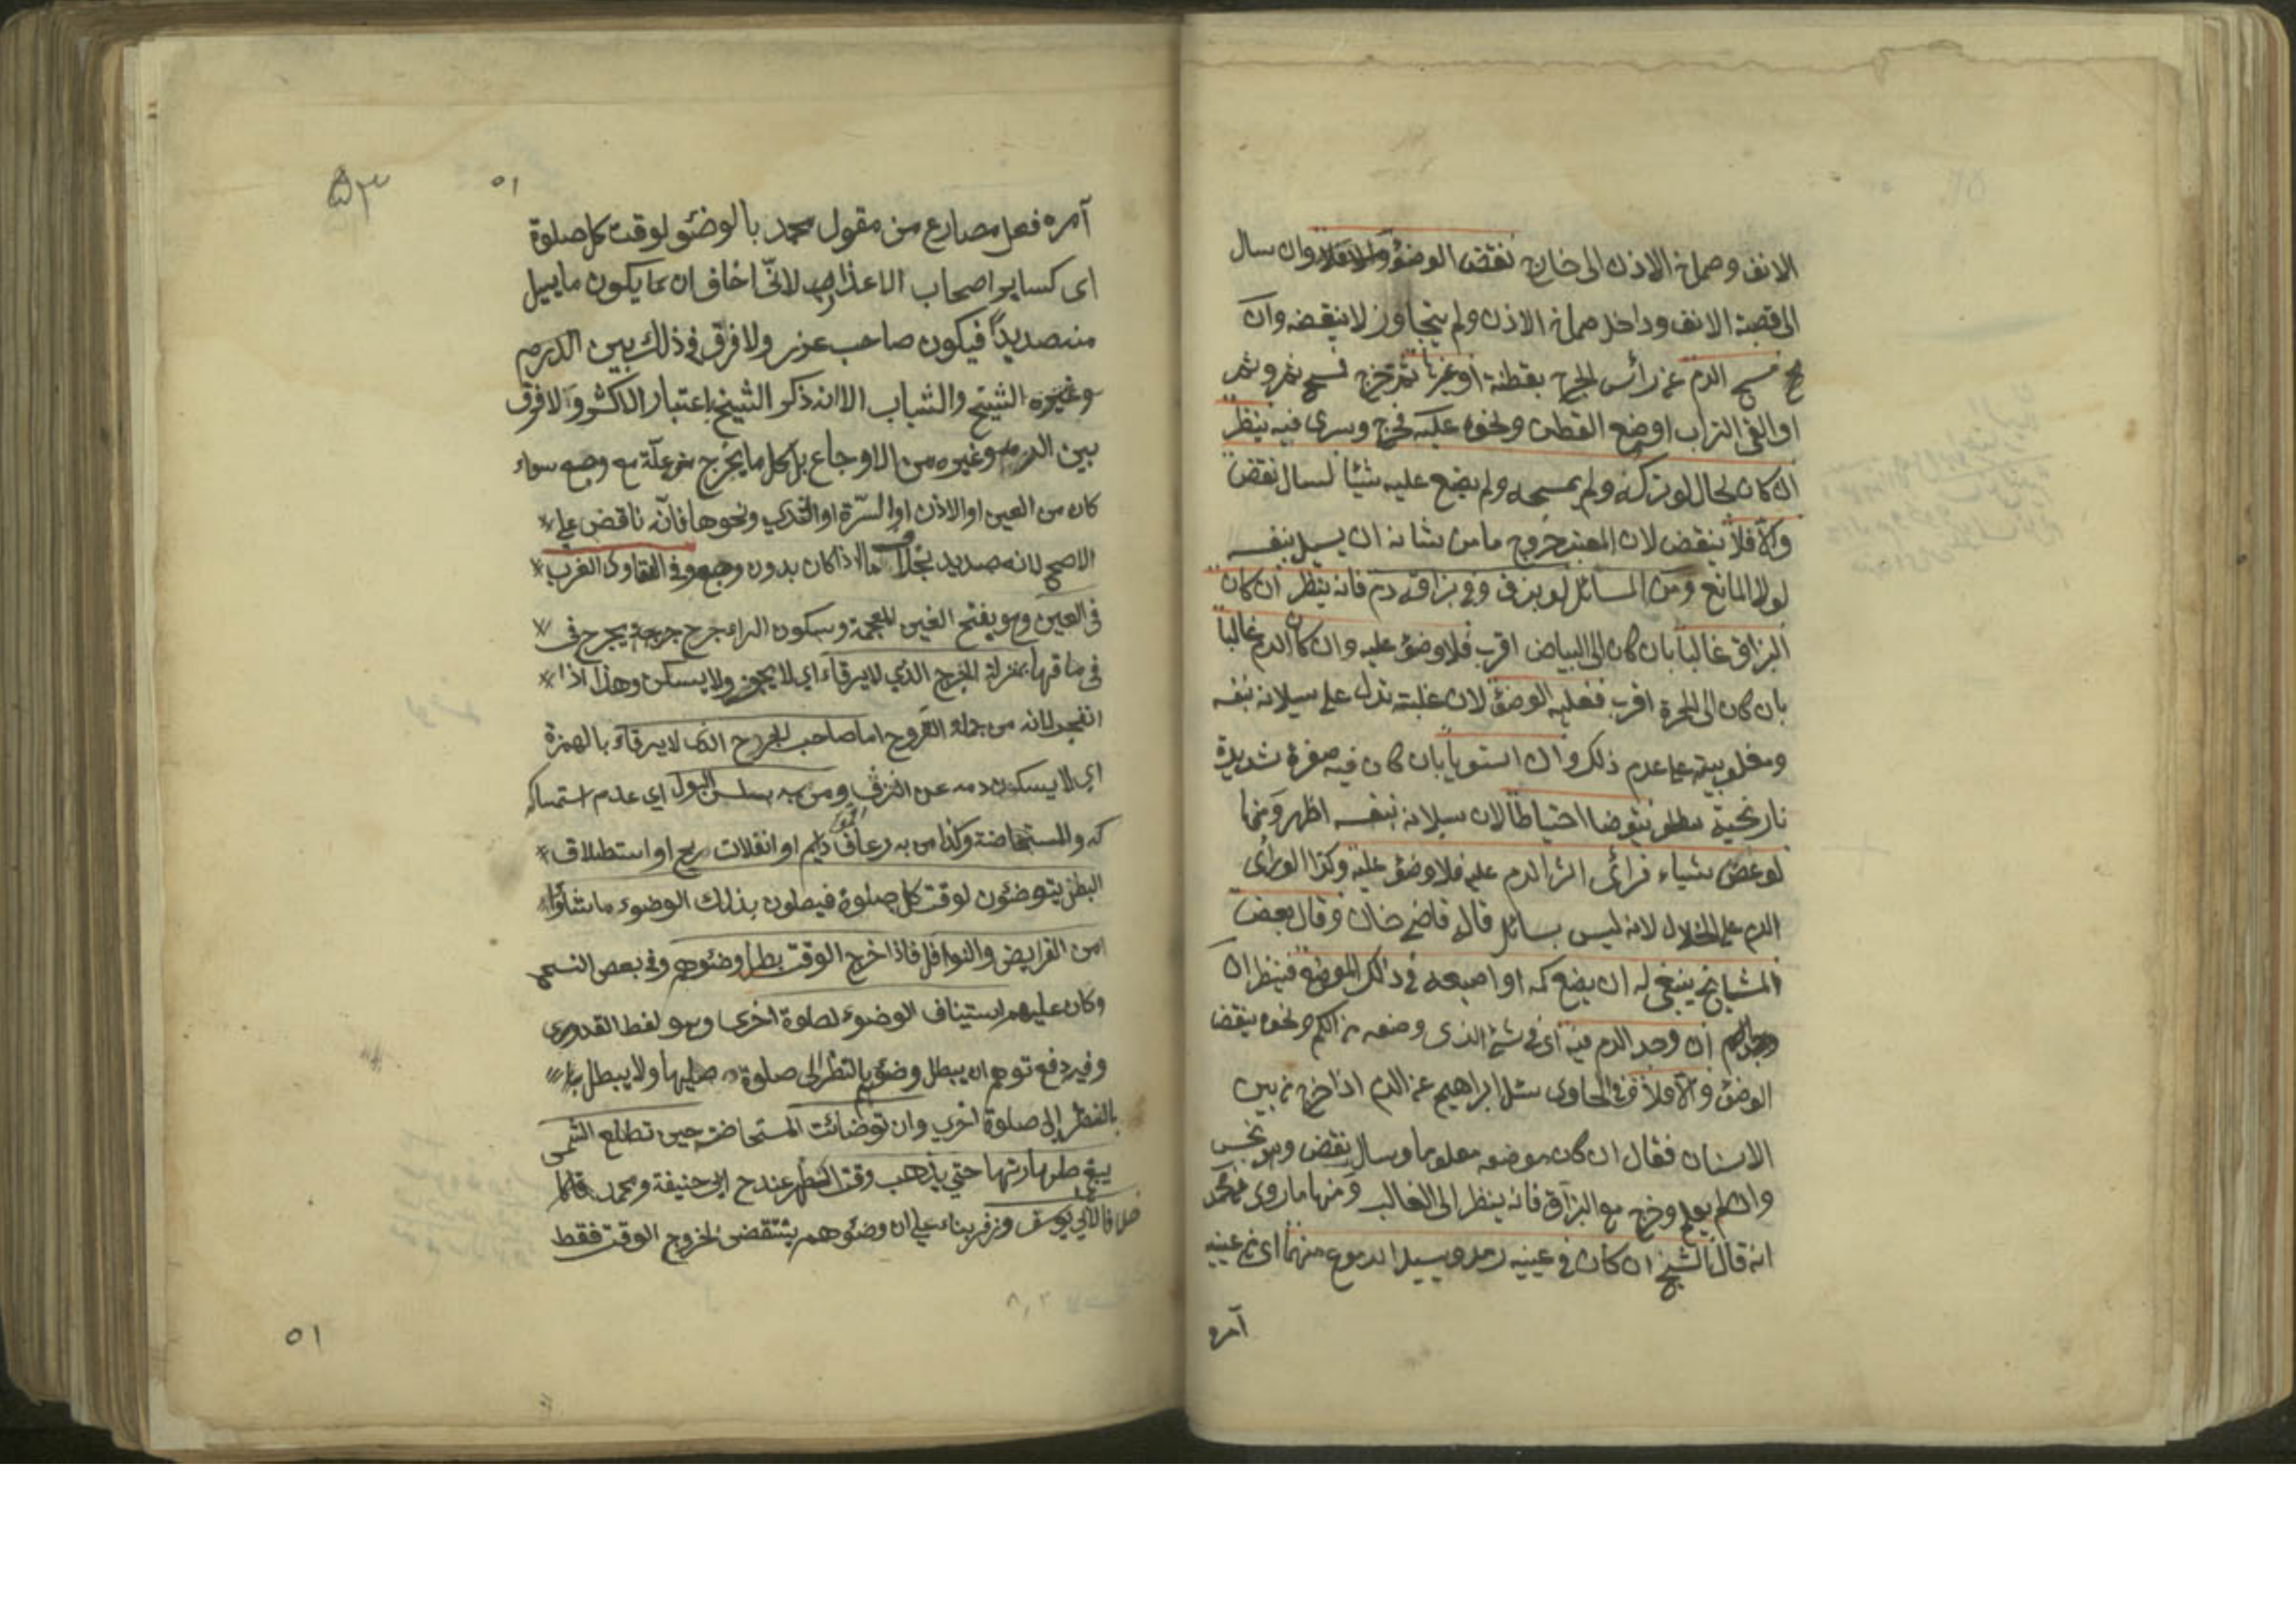 الانف وصماخ الاذن الى خارج نقض الوضؤ والافلا وان سال
الى قصبة الانف وداخل صماخ الاذن ولم يتجاوز لا ينقضه وان
مسح الدم عن رأس الجرح بقطنة او غيرها ثم خرج فمسح ثم وثم
او القى التراب او وضع القطن ونحوه عليه فخرج وسرى فيه ينظر
ان كان بحال لو تركه ولم يمسحه ولم يضع عليه شيئا لسال نقض
والا فلا ينقض لان المعتبر خروج ما من شانه ان يسيل بنفسه
لولا المانع ومن المسائل لو بزق وفي بزاقه دم فانه ينظر ان كان
البزاق غالبا بان كان الى البياض اقرب فلا وضؤ عليه وان كان الدم غالبا
بان كان الى الحمرة اقرب فعليه الوضؤ لان غلبته تدل على سيلانه بنفسه
ومغلوبيته على عدم ذلك وان استويا بان كان فيه صفرة شديدة
نارنجية يتوضا احتياطا لان سيلانه بنفسه اظهر ومنها
لو عض شياء فرائى اثر الدم عليه فلا وضؤ عليه وكذا لو رائى
الدم على الخلال لانه ليس بسائل قال قاضي خان وقال بعض
المشايخ ينبغي له ان يضع كمه او اصبعه في ذلك الموضع فينظر ان
ان وجد الدم فيه اى في شئ الذى وضعه من الكم ونحوه ينقض
الوضؤ والا فلا في الحاوى سئل ابراهيم عن الدم اذا خرج من بين
الاسنان فقال ان كان موضعه معلوما وسال نقض وهو نجس
وان لم يعلم وخرج مع البزاق فانه ينظر الى الغالب ومنها ما روى محمد
انه قال الشيخ ان كان في عينيه رمد ويسيل الدموع منهما اى من عينيه
آمره
٥١
٥٣
آمره فعل مضارع من مقول محمد بالوضئو لوقت كل صلوة
اى كساير اصحاب الاعذار لانى اخاف ان يكون ما يسيل
منه صديدا فيكون صاحب عذر ولا فرق في ذلك بين الدرم
وغيره الشيخ والشباب الا انه ذكر الشيخ باعتبار الاكثر ولا فرق
بين الدرم وغيره من الاوجاع بل كل ما يخرج من علة مع وجع سواء
كان من العين او الاذن او السرة او الثدي ونحوها فانه ناقض على
الاصح لانه صديد بخلاف ما اذا كان بدون وجع وفي الفتاوى الغرب
في العين وهو بفتح الغين المعجمة وسكون الراء جرح يخرج في
في ماقها بمنزلة الجرح الذي لا يرقاء اي لا يسكن وهذا اذا
انفجر لانه من جملة القروح اما صاحب الجرح الذي لا يرقاء بالهمزة
اي لا يسكن دمه عن النزف ومن به سلس البول اي عدم استمساكه
له والمستحاضة وكذا من به رعاف دايم او انفلات ريح او استطلاق
البطن يتوضئون لوقت كل صلوة فيصلون بذلك الوضوء ما شاؤا
من الفرايض والنوافل فاذا خرج الوقت بطل وضئوهم وفي بعض النسخ
وكان عليهم استيناف الوضوء لصلوة اخرى وهو لفظ القدورى
وفيه دفع توهم ان يبطل وضؤهم بالنظر الى صلوة صليها ولا يبطل
بالنظر الى صلوة اخرى وان توضائت المستحاضة حين تطلع الشمس
يبقى طهارتها حتى يذهب وقت الظهر عند ابي حنيفة ومحمد
خلافا لابي يوسف وزفر بناء على ان وضئوهم ينتقض بخروج الوقت فقط
٥١